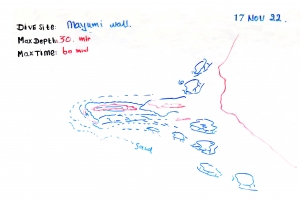 DIVE SITE: Mayumi Wall.
17 NOV 22.
MAX DEPTH: 30. mtr
MAX TIME: 60 mins
Sand